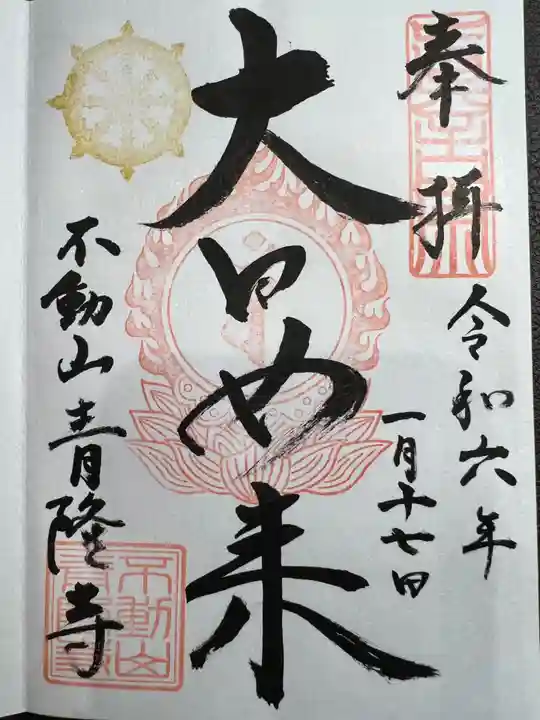 奉拝
令和六年
一月十七日
大日如来
不動山青隆寺
不動山